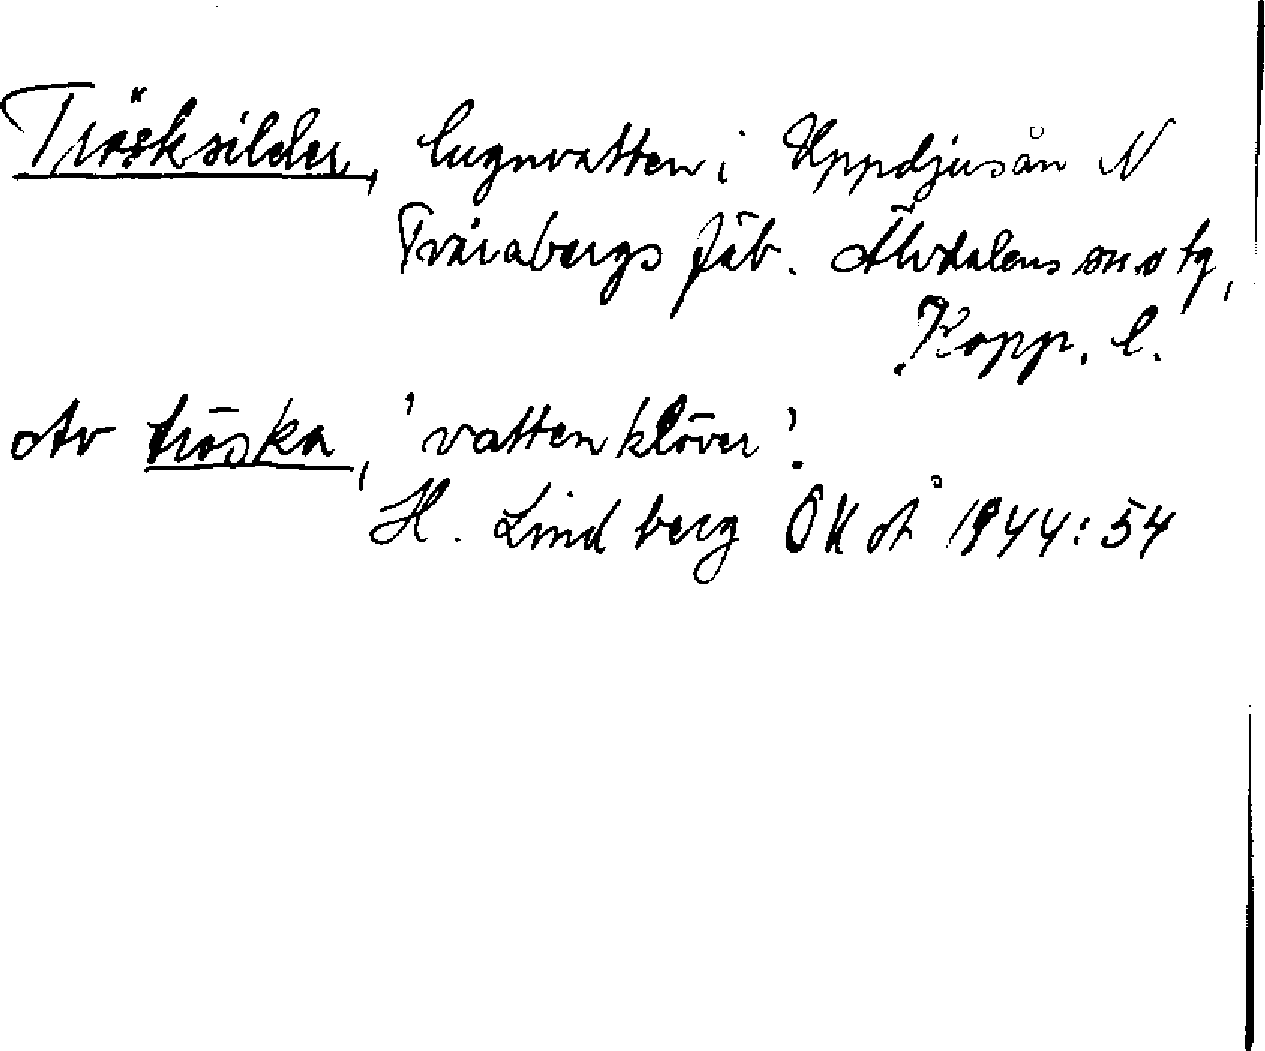 Trösksilder, lugnvatten i Uppdjusån N
Tvärabergs fäb. Älvdalens sn o tg,
Kopp. l.
Av tröska, 'vattenklöver'.
H. Lindberg OKÅ 1944:54